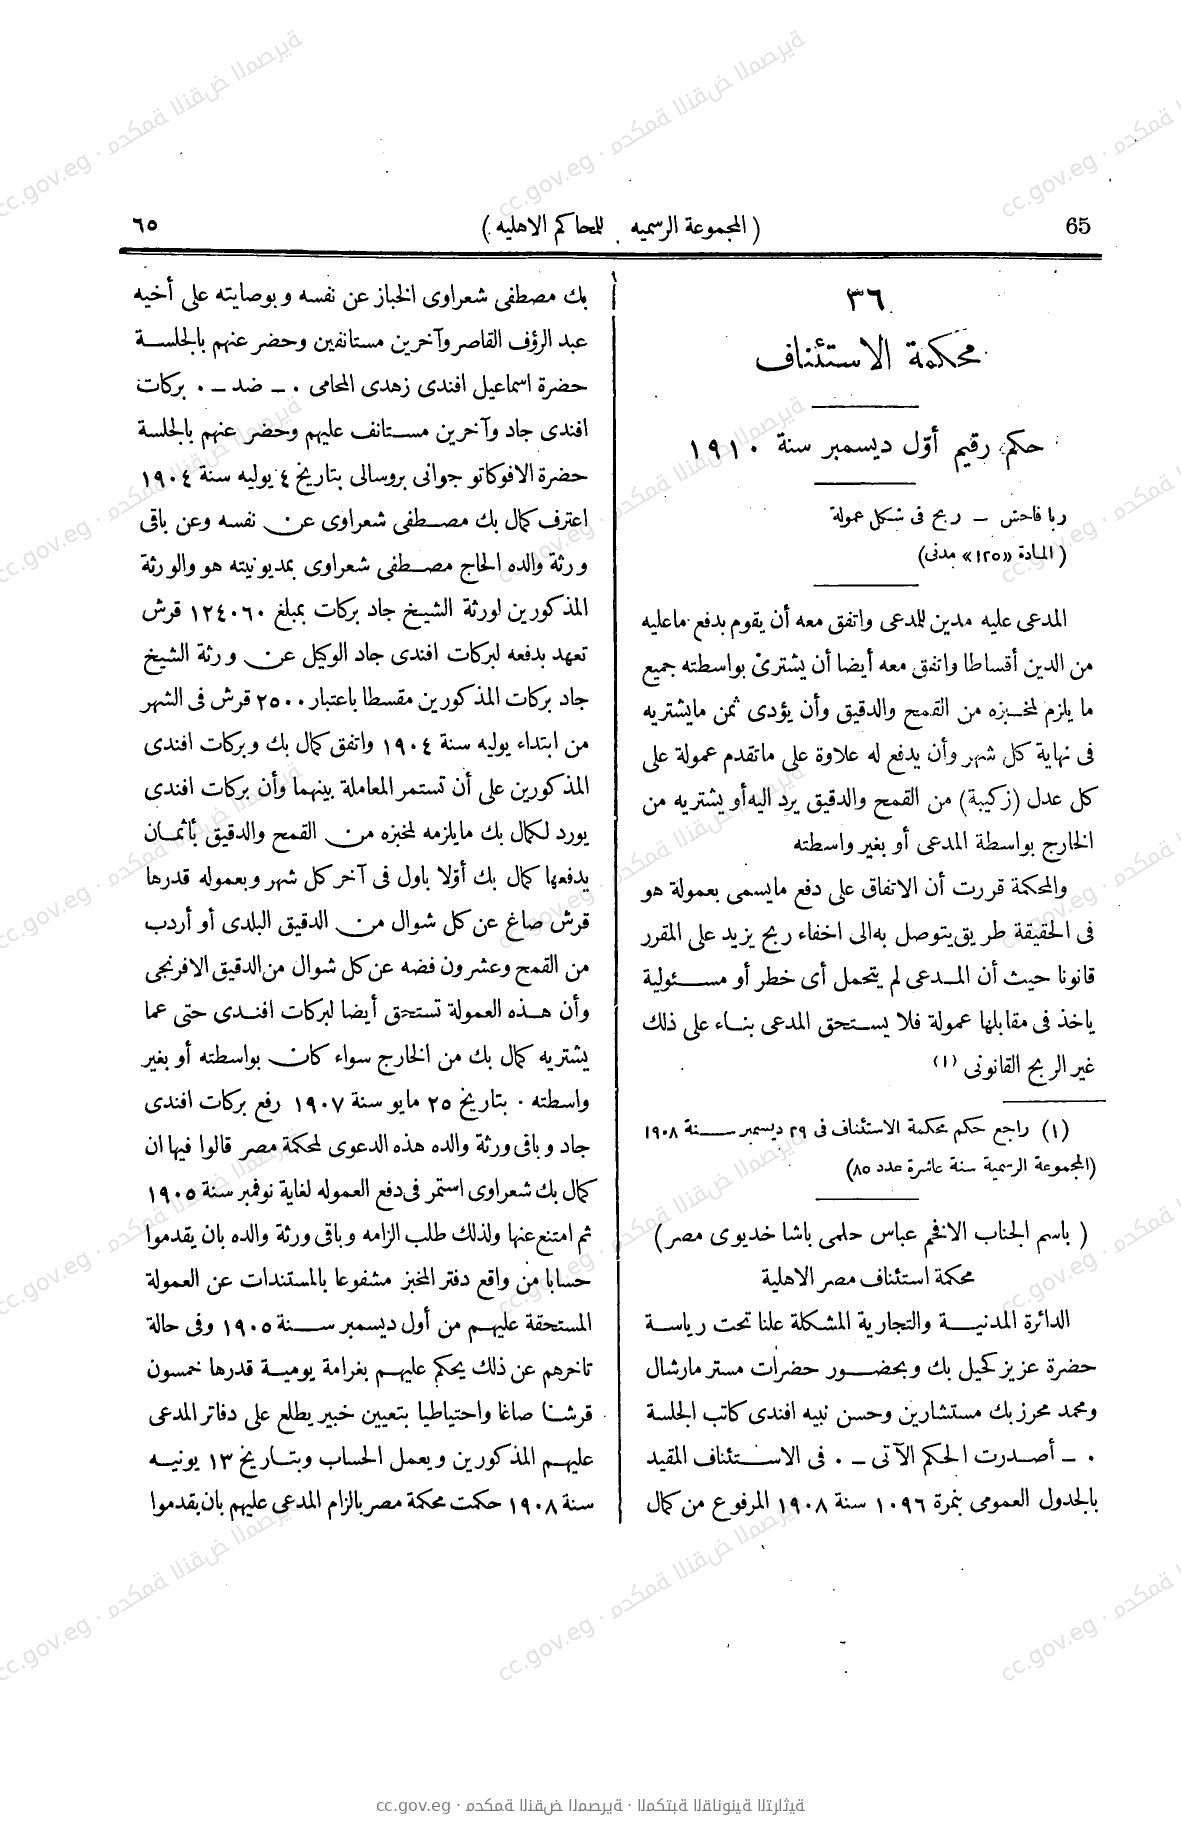 65
( المجموعة الرسميه للمحاكم الاهليه )
٦٥
٣٦
محكمة الاستئناف
حكم رقيم أوّل ديسمبر سنة ١٩١٠
ربا فاحش – ربح فى شكل عمولة
( المادة «١٢٥» مدنى)
المدعى عليه مدين للمدعى واتفق معه أن يقوم بدفع ماعليه
من الدين أقساطا واتفق معه أيضا أن يشترى بواسطته جميع
ما يلزم لمخبزه من القمح والدقيق وأن يؤدى ثمن مايشتريه
فى نهاية كل شهر وأن يدفع له علاوة على ماتقدم عمولة على
كل عدل (زكيبة) من القمح والدقيق يرد اليه أو يشتريه من
الخارج بواسطة المدعى أو بغير واسطته
والمحكمة قررت أن الاتفاق على دفع مايسمى بعمولة هو
فى الحقيقة طريق يتوصل به الى اخفاء ربح يزيد على المقرر
قانونا حيث أن المدعى لم يتحمل أى خطر أو مسئولية
ياخذ فى مقابلها عمولة فلا يستحق المدعى بناء على ذلك
غير الربح القانونى (١)
(١) راجع حكم محكمة الاستئناف فى ٢٩ ديسمبر سنة ١٩٠٨
(المجموعة الرسمية سنة عاشرة عدد ٨٥)
( باسم الجناب الافخم عباس حلمى باشا خديوى مصر )
محكمة استئناف مصر الاهلية
الدائرة المدنية والتجارية المشكلة علنا تحت رياسة
حضرة عزيز كحيل بك وبحضور حضرات مستر مارشال
ومحمد محرز بك مستشارين وحسن نبيه افندى كاتب الجلسة
٠ – أصدرت الحكم الآتى – ٠ فى الاستئناف المقيد
بالجدول العمومى بنمرة ١٠٩٦ سنة ١٩٠٨ المرفوع من كمال
بك مصطفى شعراوى الخباز عن نفسه وبوصايته على أخيه
عبد الرؤف القاصر وآخرين مستانفين وحضر عنهم بالجلسة
حضرة اسماعيل افندى زهدى المحامى ٠ – ضد – ٠ بركات
افندى جاد وآخرين مستانف عليهم وحضر عنهم بالجلسة
حضرة الافوكاتو جوانى بروسالى بتاريخ ٤ يوليه سنة ١٩٠٤
اعترف كمال بك مصطفى شعراوى عن نفسه وعن باقى
ورثة والده الحاج مصطفى شعراوى بمديونيته هو والورثة
المذكورين لورثة الشيخ جاد بركات بمبلغ ١٢٤٠٦٠ قرش
تعهد بدفعه لبركات افندى جاد الوكيل عن ورثة الشيخ
جاد بركات المذكورين مقسطا باعتبار ٢٥٠٠ قرش فى الشهر
من ابتداء يوليه سنة ١٩٠٤ واتفق كمال بك وبركات افندى
المذكورين على أن تستمر المعاملة بينهما وأن بركات افندى
يورد لكمال بك مايلزمه لمخبزه من القمح والدقيق بأثمان
يدفعها كمال بك أوّلا باول فى آخر كل شهر وبعموله قدرها
قرش صاغ عن كل شوال من الدقيق البلدى أو أردب
من القمح وعشرون فضه عن كل شوال من الدقيق الافرنجى
وأن هذه العمولة تستحق أيضا لبركات افندى حتى عما
يشتريه كمال بك من الخارج سواء كان بواسطته أو بغير
واسطته ٠ بتاريخ ٢٥ مايو سنة ١٩٠٧ رفع بركات افندى
جاد وباقى ورثة والده هذه الدعوى لمحكمة مصر قالوا فيها ان
كمال بك شعراوى استمر فى دفع العموله لغاية نوفمبر سنة ١٩٠٥
ثم امتنع عنها ولذلك طلب الزامه وباقى ورثة والده بان يقدموا
حسابا من واقع دفتر المخبز مشفوعا بالمستندات عن العمولة
المستحقة عليهم من أول ديسمبر سنة ١٩٠٥ وفى حالة
تاخرهم عن ذلك يحكم عليهم بغرامة يومية قدرها خمسون
قرشا صاغا واحتياطيا بتعيين خبير يطلع على دفاتر المدعى
عليهم المذكورين ويعمل الحساب وبتاريخ ١٣ يونيه
سنة ١٩٠٨ حكمت محكمة مصر بالزام المدعى عليهم بان يقدموا
cc.gov.eg · محكمة النقض المصرية · المكتبة القانونية التراثية